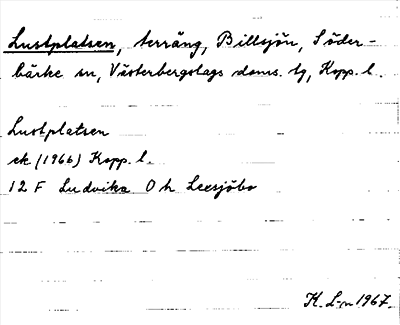 Lustplatsen, terräng, Billsjön, Söder-
bärke sn, Västerbergslags doms. tg, Kopp. l.
Lustplatsen
ek (1966) Kopp. l.
12 F Ludvika 0 h Leksjöbo
K. L-n 1967.